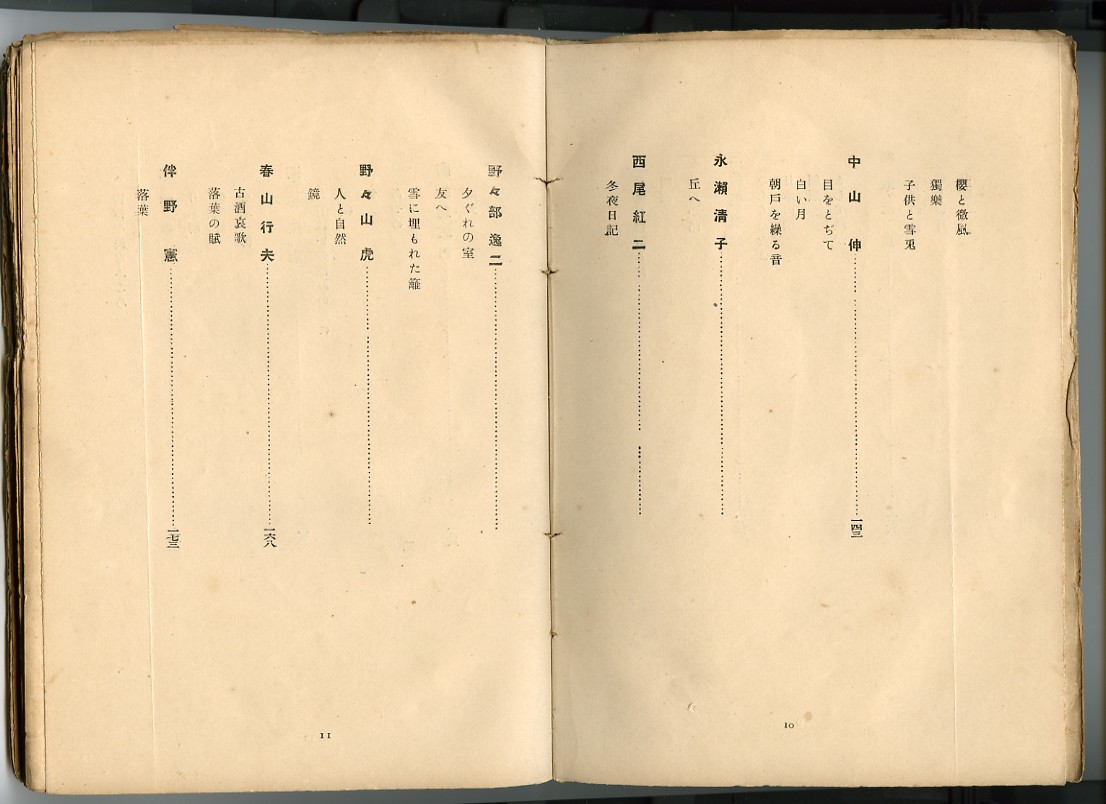 櫻と微風
獨樂
子供と雪兎
中山伸……一四三
目をとぢて
白い月
朝戸を繰る音
永瀬清子……
丘へ
西尾紅二……
冬夜日記
10
野々部逸二……
夕ぐれの室
友へ
雪に埋もれた籬
野々山虎……
人と自然
鏡
春山行夫……一六八
古酒哀歌
落葉の賦
伴野憲……一七三
落葉
11